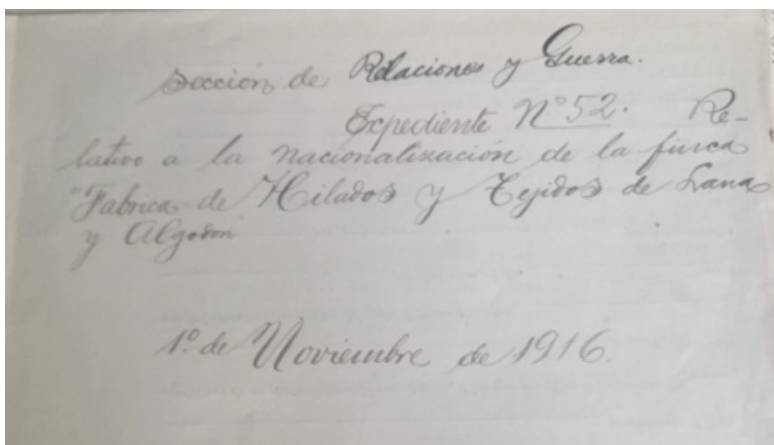 Sección de Relaciones y Guerra.
Expediente N.º 52. Re-
lativo a la nacionalización de la finca
"Fabrica de Hilados y Tejidos de Lana
y Algodon"
1º de Noviembre de 1916.